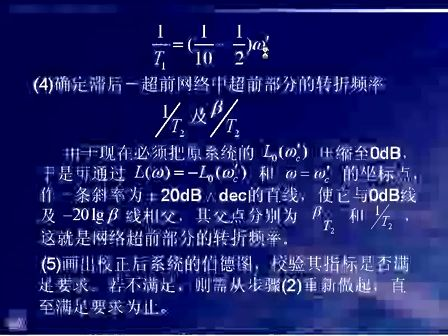 1/T₁ = (1/10 - 1/2)ω'c
(4)确定滞后－超前网络中超前部分的转折频率
1/T₂ 及 β/T₂
由于现在必须把原系统的 L₀(ω'c) 压缩至0dB,
于是可通过 L(ω)=-L₀(ω'c) 和 ω=ω'c 的坐标点,
作一条斜率为+20dB／dec的直线，使它与0dB线
及 -20lgβ 线相交，其交点分别为 β/T₂ 和 1/T₂,
这就是网络超前部分的转折频率。
(5)画出校正后系统的伯德图，校验其指标是否满
足要求。若不满足，则需从步骤(2)重新做起，直
至满足要求为止。